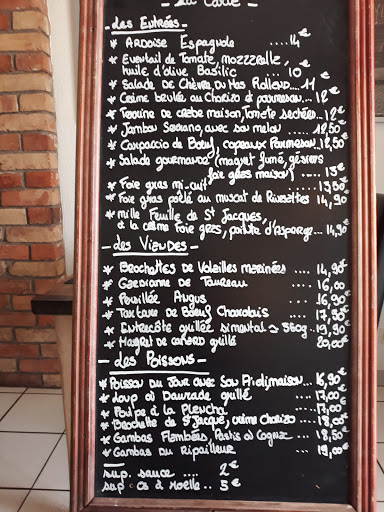 La Carte
- des Entrées -
* Ardoise Espagnole .... 14€
* Eventail de Tomate, mozzzrelle,
huile d'olive Basilic ... 10€
* Salade de Chèvre, du Mas Rolland... 11€
* Crème brulée au Chorizo et parmesan... 12€
* Terrine de crabe maison, Tomate sechées.. 12€
* Jambon Serrano, avec son melon ..... 12,50€
* Carpaccio de Bœuf, copeaux Parmesan. 12,50€
* Salade gourmande (magret fumé, gésiers
foie gras maison) .... 13€
* Foie gras mi-cuit ............ 13,50€
* Foie gras poêlé au muscat de Rivesaltes 14,90€
* mille Feuille de St Jacques,
à la crème Foie gras, pointe d'asperge... 14,90€
- des Viandes -
* Brochettes de Volailles marinées .... 14,90€
* Gardianne de Taureau .... 16,00€
* Angus .... 16,90€
* Tartare de Bœuf Charolais ..... 17,90€
* Entrecôte grillée simental ≈ 360g.. 19,90€
* Magret de canard grillé 20,00€
- des Poissons -
* Poisson du Jour avec Son Aïoli maison... 16,90€
* Loup où Daurade grillé .... 17,00€
* Poulpe à la Plancha .... 17,00€
* Brochette de St Jacque, crème Chorizo .. 18,00€
* Gambas Flambées, Pastis où Cognac ... 18,50€
* Gambas du Ripailleur .... 19,00€
sup. sauce .... 2€
sup os à moelle .. 5€